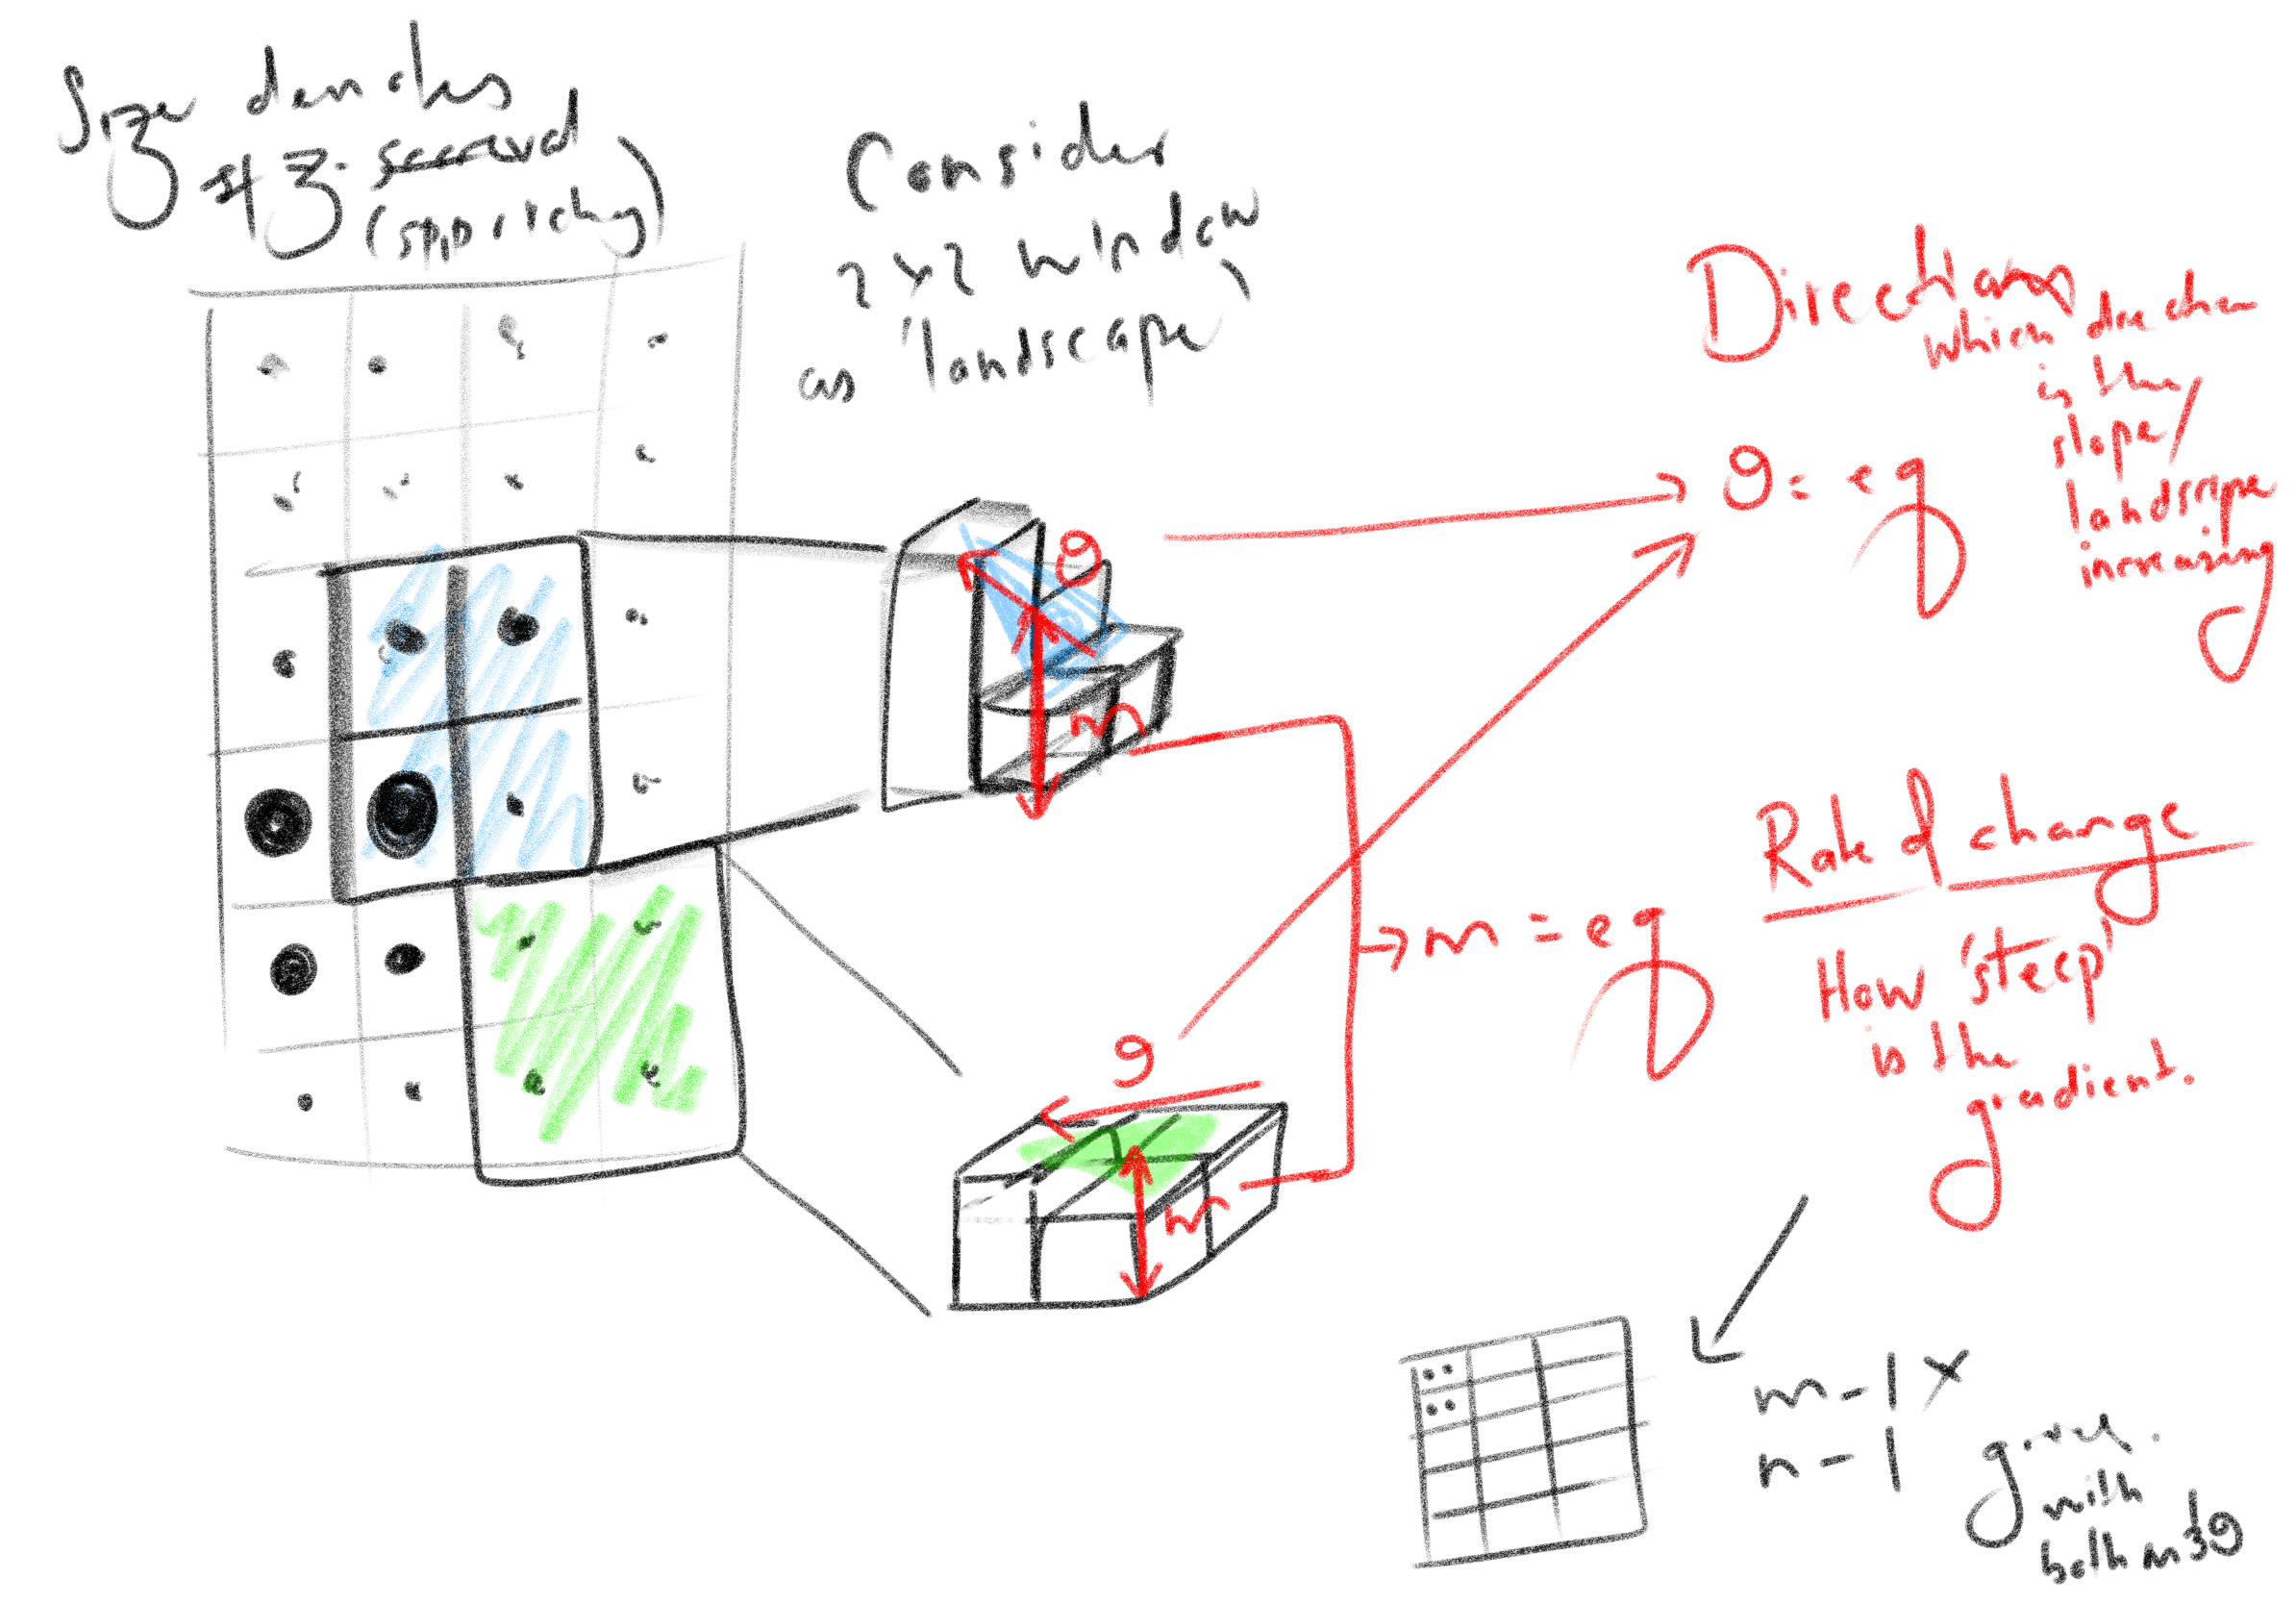 Size denotes
# z. scored
(spp richy)
Consider
2x2 window
as 'landscape'
Directions
which direction
is the
slope/
landscape
increasing
θ = eq
θ
m
Rate of change
m = eq
How 'steep'
is the
gradient.
θ
m
m - 1 x
n - 1
with
both m & θ